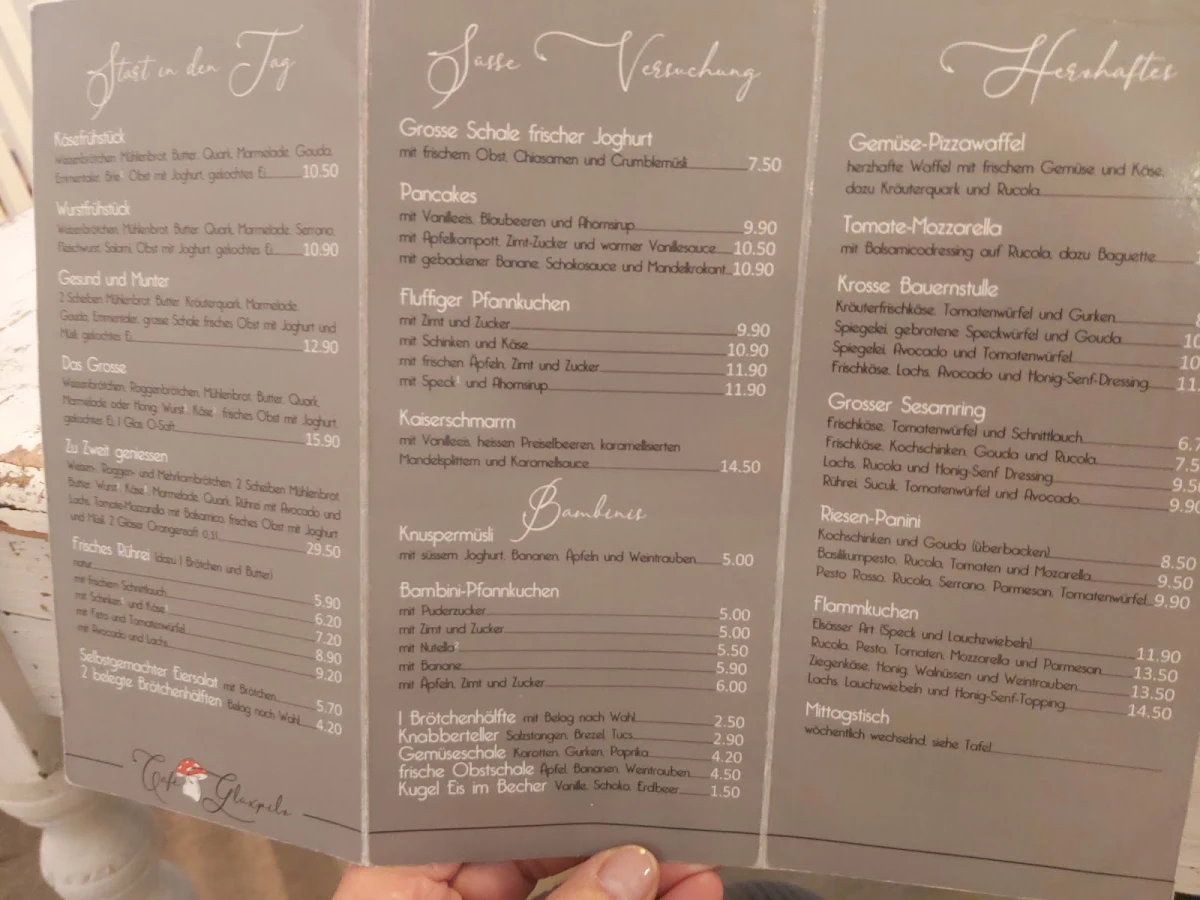 Start in den Tag
Käsefrühstück
Weizenbrötchen, Mühlenbrot, Butter, Quark, Marmelade, Gouda,
Emmentaler, Brie¹, Obst mit Joghurt, gekochtes Ei 10.50
Wurstfrühstück
Weizenbrötchen, Mühlenbrot, Butter, Quark, Marmelade, Serrano,
Fleischwurst, Salami, Obst mit Joghurt, gekochtes Ei 10.90
Gesund und Munter
2 Scheiben Mühlenbrot, Butter, Kräuterquark, Marmelade,
Gouda, Emmentaler, grosse Schale frisches Obst mit Joghurt und
Müsli, gekochtes Ei 12.90
Das Grosse
Weizenbrötchen, Roggenbrötchen, Mühlenbrot, Butter, Quark,
Marmelade oder Honig, Wurst, Käse, frisches Obst mit Joghurt,
gekochtes Ei, 1 Glas O-Saft 15.90
Zu Zweit geniessen
Weizen-, Roggen- und Mehrkornbrötchen, 2 Scheiben Mühlenbrot,
Butter, Wurst, Käse, Marmelade, Quark, Rührei mit Avocado und
Lachs, Tomate-Mozzarella mit Balsamico, frisches Obst mit Joghurt
und Müsli, 2 Gläser Orangensaft 0,1l 29.50
Frisches Rührei (dazu 1 Brötchen und Butter)
natur 5.90
mit frischem Schnittlauch 6.20
mit Schinken und Käse 7.20
mit Feta und Tomatenwürfel 8.90
mit Avocado und Lachs 9.20
Selbstgemachter Eiersalat mit Brötchen 5.70
2 belegte Brötchenhälften Belag nach Wahl 4.20
Café Glüxpilz
Süsse Versuchung
Grosse Schale frischer Joghurt
mit frischem Obst, Chiasamen und Crumblemüsli 7.50
Pancakes
mit Vanilleeis, Blaubeeren und Ahornsirup 9.90
mit Apfelkompott, Zimt-Zucker und warmer Vanillesauce 10.50
mit gebackener Banane, Schokosauce und Mandelkrokant 10.90
Fluffiger Pfannkuchen
mit Zimt und Zucker 9.90
mit Schinken und Käse 10.90
mit frischen Äpfeln, Zimt und Zucker 11.90
mit Speck² und Ahornsirup 11.90
Kaiserschmarrn
mit Vanilleeis, heissen Preiselbeeren, karamellisierten
Mandelsplittern und Karamellsauce 14.50
Bambinis
Knuspermüsli
mit süssem Joghurt, Bananen, Äpfeln und Weintrauben 5.00
Bambini-Pfannkuchen
mit Puderzucker 5.00
mit Zimt und Zucker 5.00
mit Nutella² 5.50
mit Banane 5.90
mit Äpfeln, Zimt und Zucker 6.00
1 Brötchenhälfte mit Belag nach Wahl 2.50
Knabberteller Salzstangen, Brezel, Tucs 2.90
Gemüseschale Karotten, Gurken, Paprika 4.20
frische Obstschale Äpfel, Bananen, Weintrauben 4.50
Kugel Eis im Becher Vanille, Schoko, Erdbeer 1.50
Herzhaftes
Gemüse-Pizzawaffel
herzhafte Waffel mit frischem Gemüse und Käse,
dazu Kräuterquark und Rucola
Tomate-Mozzarella
mit Balsamicodressing auf Rucola, dazu Baguette
Krosse Bauernstulle
Kräuterfrischkäse, Tomatenwürfel und Gurken
Spiegelei, gebratene Speckwürfel und Gouda 10
Spiegelei, Avocado und Tomatenwürfel 10
Frischkäse, Lachs, Avocado und Honig-Senf-Dressing 11.
Grosser Sesamring
Frischkäse, Tomatenwürfel und Schnittlauch 6.7
Frischkäse, Kochschinken, Gouda und Rucola 7.5
Lachs, Rucola und Honig-Senf Dressing 9.50
Rührei, Sucuk, Tomatenwürfel und Avocado 9.90
Riesen-Panini
Kochschinken und Gouda (überbacken) 8.50
Basilikumpesto, Rucola, Tomaten und Mozarella 9.50
Pesto Rosso, Rucola, Serrano, Parmesan, Tomatenwürfel 9.90
Flammkuchen
Elsässer Art (Speck und Lauchzwiebeln) 11.90
Rucola, Pesto, Tomaten, Mozzarella und Parmesan 13.50
Ziegenkäse, Honig, Walnüssen und Weintrauben 13.50
Lachs, Lauchzwiebeln und Honig-Senf-Topping 14.50
Mittagstisch
wöchentlich wechselnd, siehe Tafel